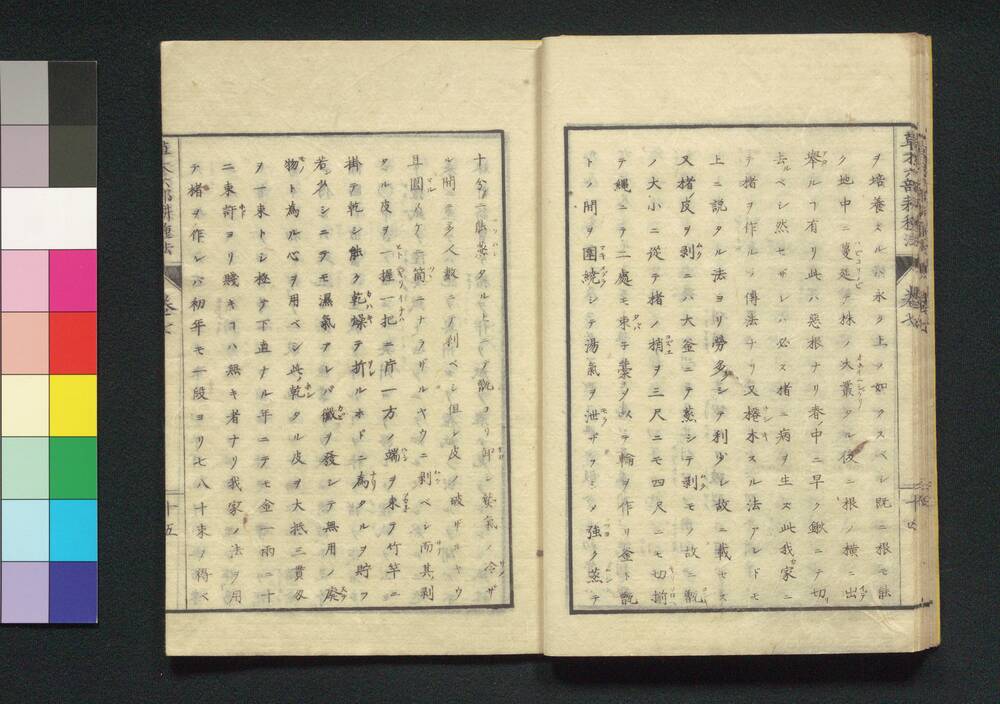 ヲ培養スルハ永ク上ノ如クスベシ既ニ根モ能
ク地中ニ蔓延テ株ノ大叢タル後ニ根ノ横ニ出
ルヿ有リ此ハ惡根ナリ春中ニ早ク鍬ニテ切
去ルベシ然セザレバ必ズ楮ニ病ヲ生ズ此我家ニ
テ楮ヲ作ルノ傳法ナリ又捲木スル法アレドモ
上ニ説タル法ヨリ勞多シテ利少シ故ニ載セズ
又楮皮ヲ剥ニハ大釜ニテ蒸シテ剥モノ故ニ甑
ノ大小ニ從テ楮ノ梢ヲ三尺ニモ四尺ニモ切揃
テ繩ニテ二處モ束子藁ヲ以テ輪ヲ作リ釜ト甑
トノ間ヲ圍繞シテ湯氣ヲ泄ザラシメ強ク蒸テ
十分ニ能蒸タル上ニテ甑ヨリ卸シ蒸氣ノ冷ザ
ル間ニ多人數ニテ剥ベシ但シ皮ノ破ザルヤウ
且圓クケ筒ニナラザルヤウニ剥ベシ而其剥
タル皮ヲ一握一把ニ片一方ノ端ヲ束子竹竿ニ
掛テ乾シ能ク乾燥テ折ルホドニ為タルヲ貯フ
若聊シニテモ濕氣アレバ黴ヲ發シテ無用ノ廢
物ト為ル心ヲ用ベシ此乾タル皮ヲ大抵三貫
ヲ一束トシ極テ下直ナル年ニテモ金一兩ニ十
二束許ヨリ賤キヿハ無キ者ナリ我家ノ法ヲ用
テ楮ヲ作レバ初年モ一段ヨリ七八十束ノ得ベ
十五